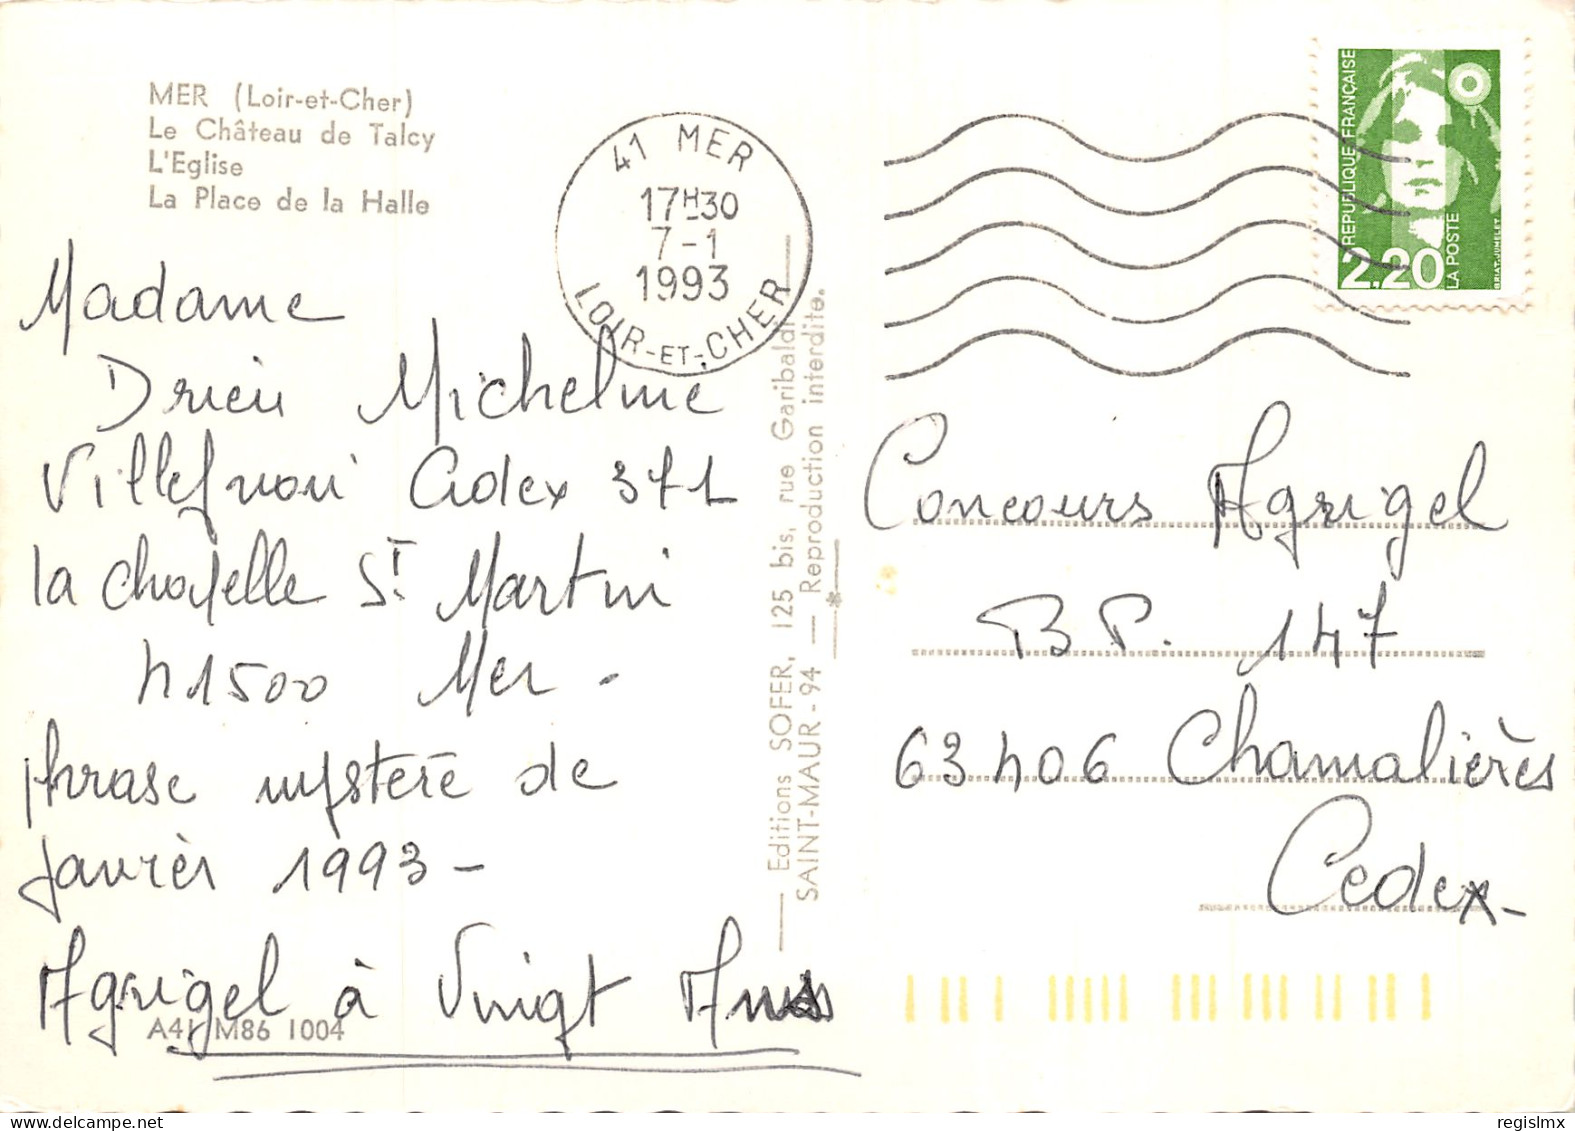 MER (Loir-et-Cher)
Le Château de Talcy
L'Eglise
La Place de la Halle
41 MER
17H30
7-1
1993
LOIR-ET-CHER
REPUBLIQUE FRANÇAISE
LA POSTE
2,20
BRIAT-JUMELET
Madame
Drieu Micheline
Villefrou Cidex 371
la chapelle St Martin
41500 Mer -
phrase mystère de
Janvier 1993 -
Agrigel à Vingt Ans
A41 M86 1004
Editions SOFER, 125 bis, rue Garibaldi
SAINT-MAUR - 94 — Reproduction interdite.
Concours Agrigel
B P. 147
63406 Chamalières
Cedex -
regislmx